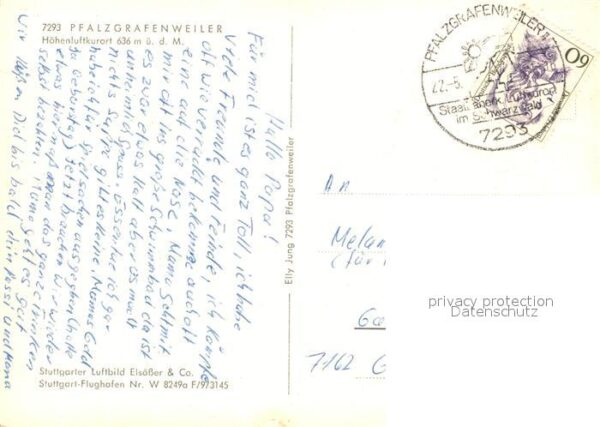 7293 PFALZGRAFENWEILER
Höhenluftkurort 636 m ü. d. M.
Hallo Papa!
Für mich ist es ganz Toll, ich habe
viele Freunde und Feinde, ich kämpfe
oft wie verrückt bekomme auch oft
eine auf die Nase. Mama geht mit
mir oft ins große Schwimmbad da ist
es zwar etwas kalt aber es macht
unheimlich Spass. Essen tue ich gar
nichts, Saft gibt es keine, Mamas Geld
habe ich für Spielsachen ausgegeben (hatte
ja Geburtstag) jetzt brauchen wir wieder
etwas hier muß man das ganze trinken
selbst bezahlen. Mama geht es gut
wir Küssen Dich bis bald dein Hessi und Mama
Stuttgarter Luftbild Elsäßer & Co.
Stuttgart-Flughafen Nr. W 8249a F/973145
Elly Jung 7293 Pfalzgrafenweiler
PFALZGRAFENWEILER
22.-5.
Staatl. anerk. Luftkurort
im Schwarzwald
7293
60
An
Melan
(für
Ga
7162 G
privacy protection
Datenschutz